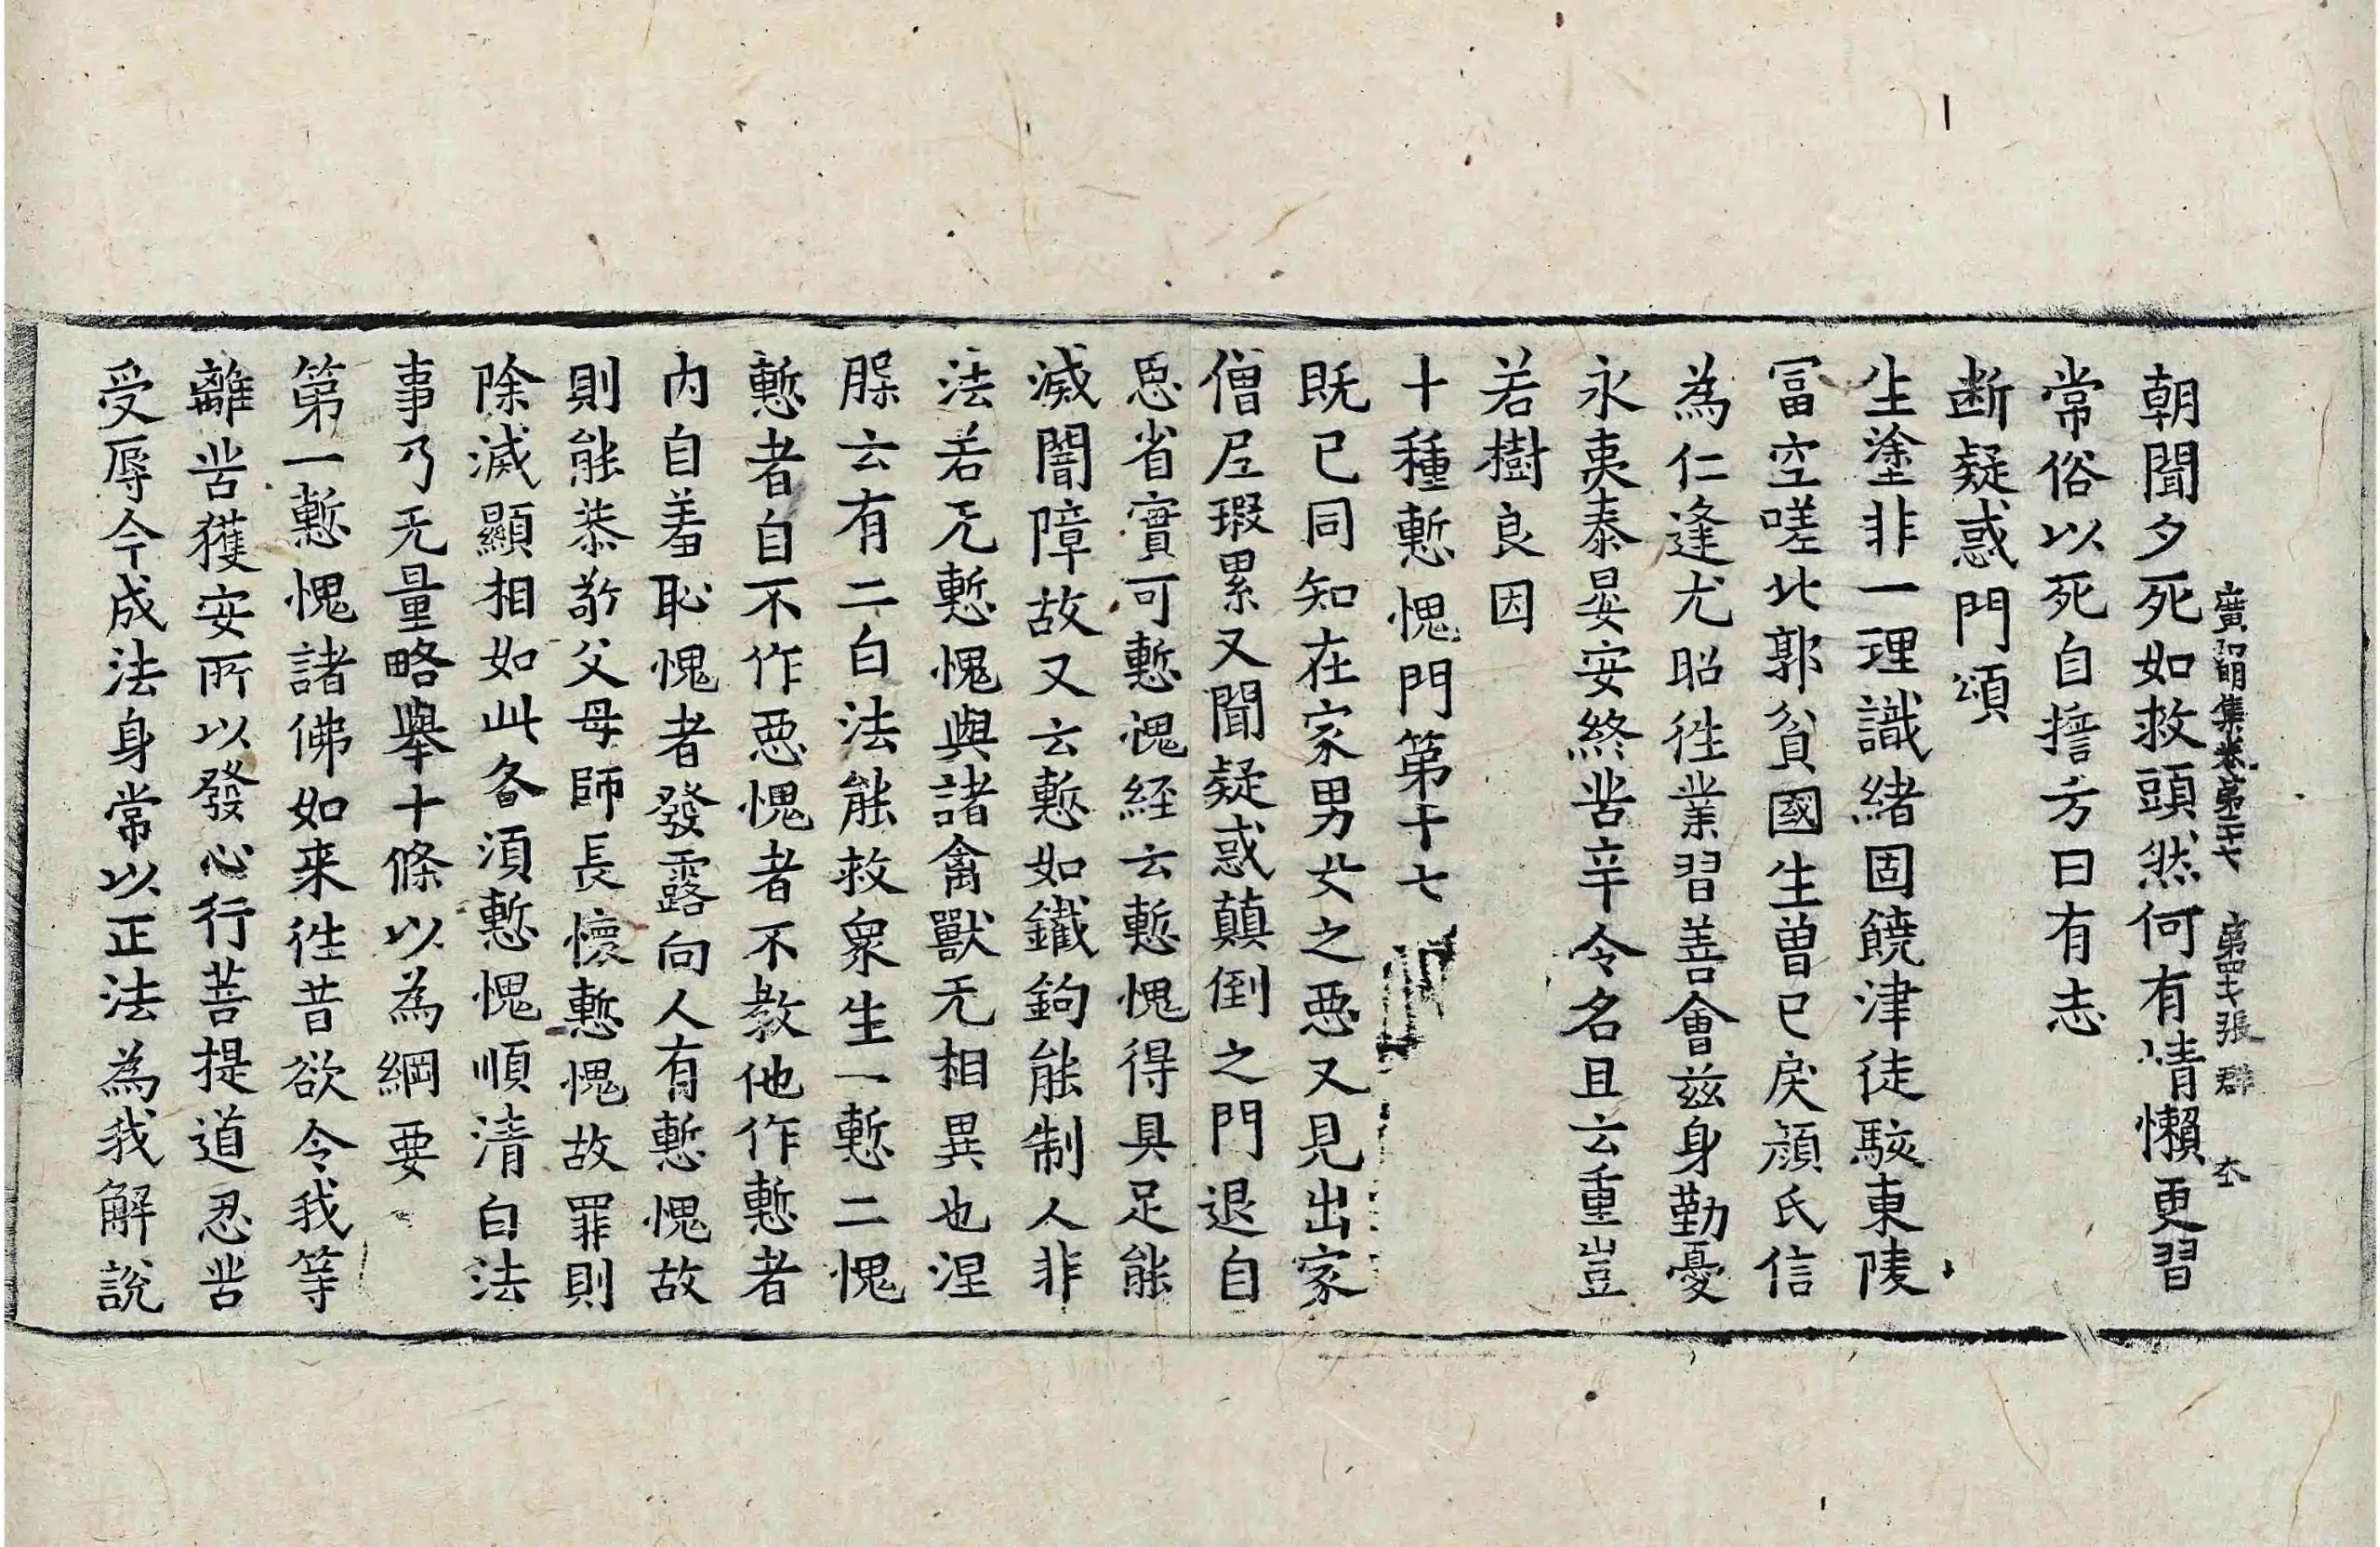 廣弘明集卷第二十七 第四十七張 群
朝聞夕死如救頭然何有情懶更習
常俗以死自擔方曰有志
断疑惑門頌
生塗非一理識緒固饒津徒駭東陵
冨空嗟北郭貧國生曾已戾顔氏信
為仁逢尤昭徃業習善會兹身勤憂
永夷泰晏安終苦辛令名且云重豈
若樹良因
十種慙愧門第十七
既已同知在家男女之惡又見出家
僧尼瑕累又聞疑惑顛倒之門退自
思省實可慙愧経云慙愧得具足能
滅闇障故又云慙如鐵鉤能制人非
法若无慙愧與諸禽獸无相異也涅
槃云有二白法能救衆生一慙二愧
慙者自不作惡愧者不教他作慙者
内自羞恥愧者發露向人有慙愧故
則能恭敬父母師長懷慙愧故罪則
除滅顯相如此各須慙愧順清白法
事乃无量略舉十條以為綱要
第一慙愧諸佛如来徃昔欲令我等
離苦獲安所以發心行菩提道忍苦
受辱今成法身常以正法為我解說